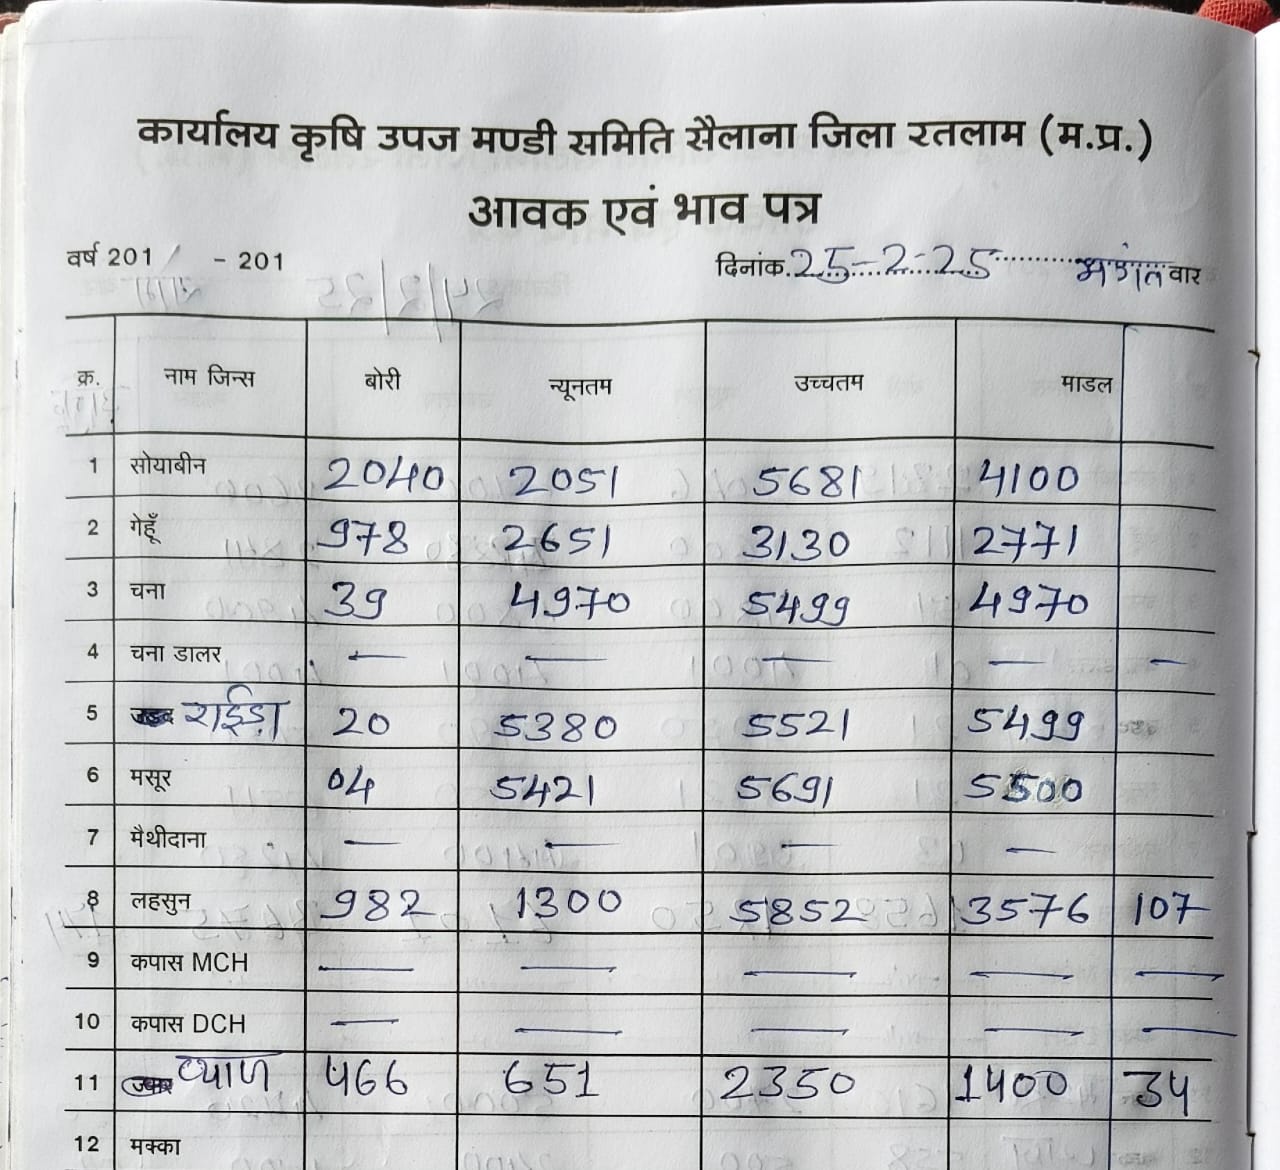 कार्यालय कृषि उपज मण्डी समिति सैलाना जिला रतलाम (म.प्र.)
आवक एवं भाव पत्र
वर्ष 201 - 201 दिनांक 25-2-25 मंगल वार
क्र. नाम जिन्स बोरी न्यूनतम उच्चतम माडल
1 सोयाबीन 2040 2051 5681 4100
2 गेहूँ 978 2651 3130 2771
3 चना 39 4970 5499 4970
4 चना डालर — — — — —
5 राईड़ा 20 5380 5521 5499
6 मसूर 04 5421 5691 5500
7 मैथीदाना — — — —
8 लहसुन 982 1300 5852 3576 107
9 कपास MCH — — — — —
10 कपास DCH — — — — —
11 प्याज 466 651 2350 1400 34
12 मक्का